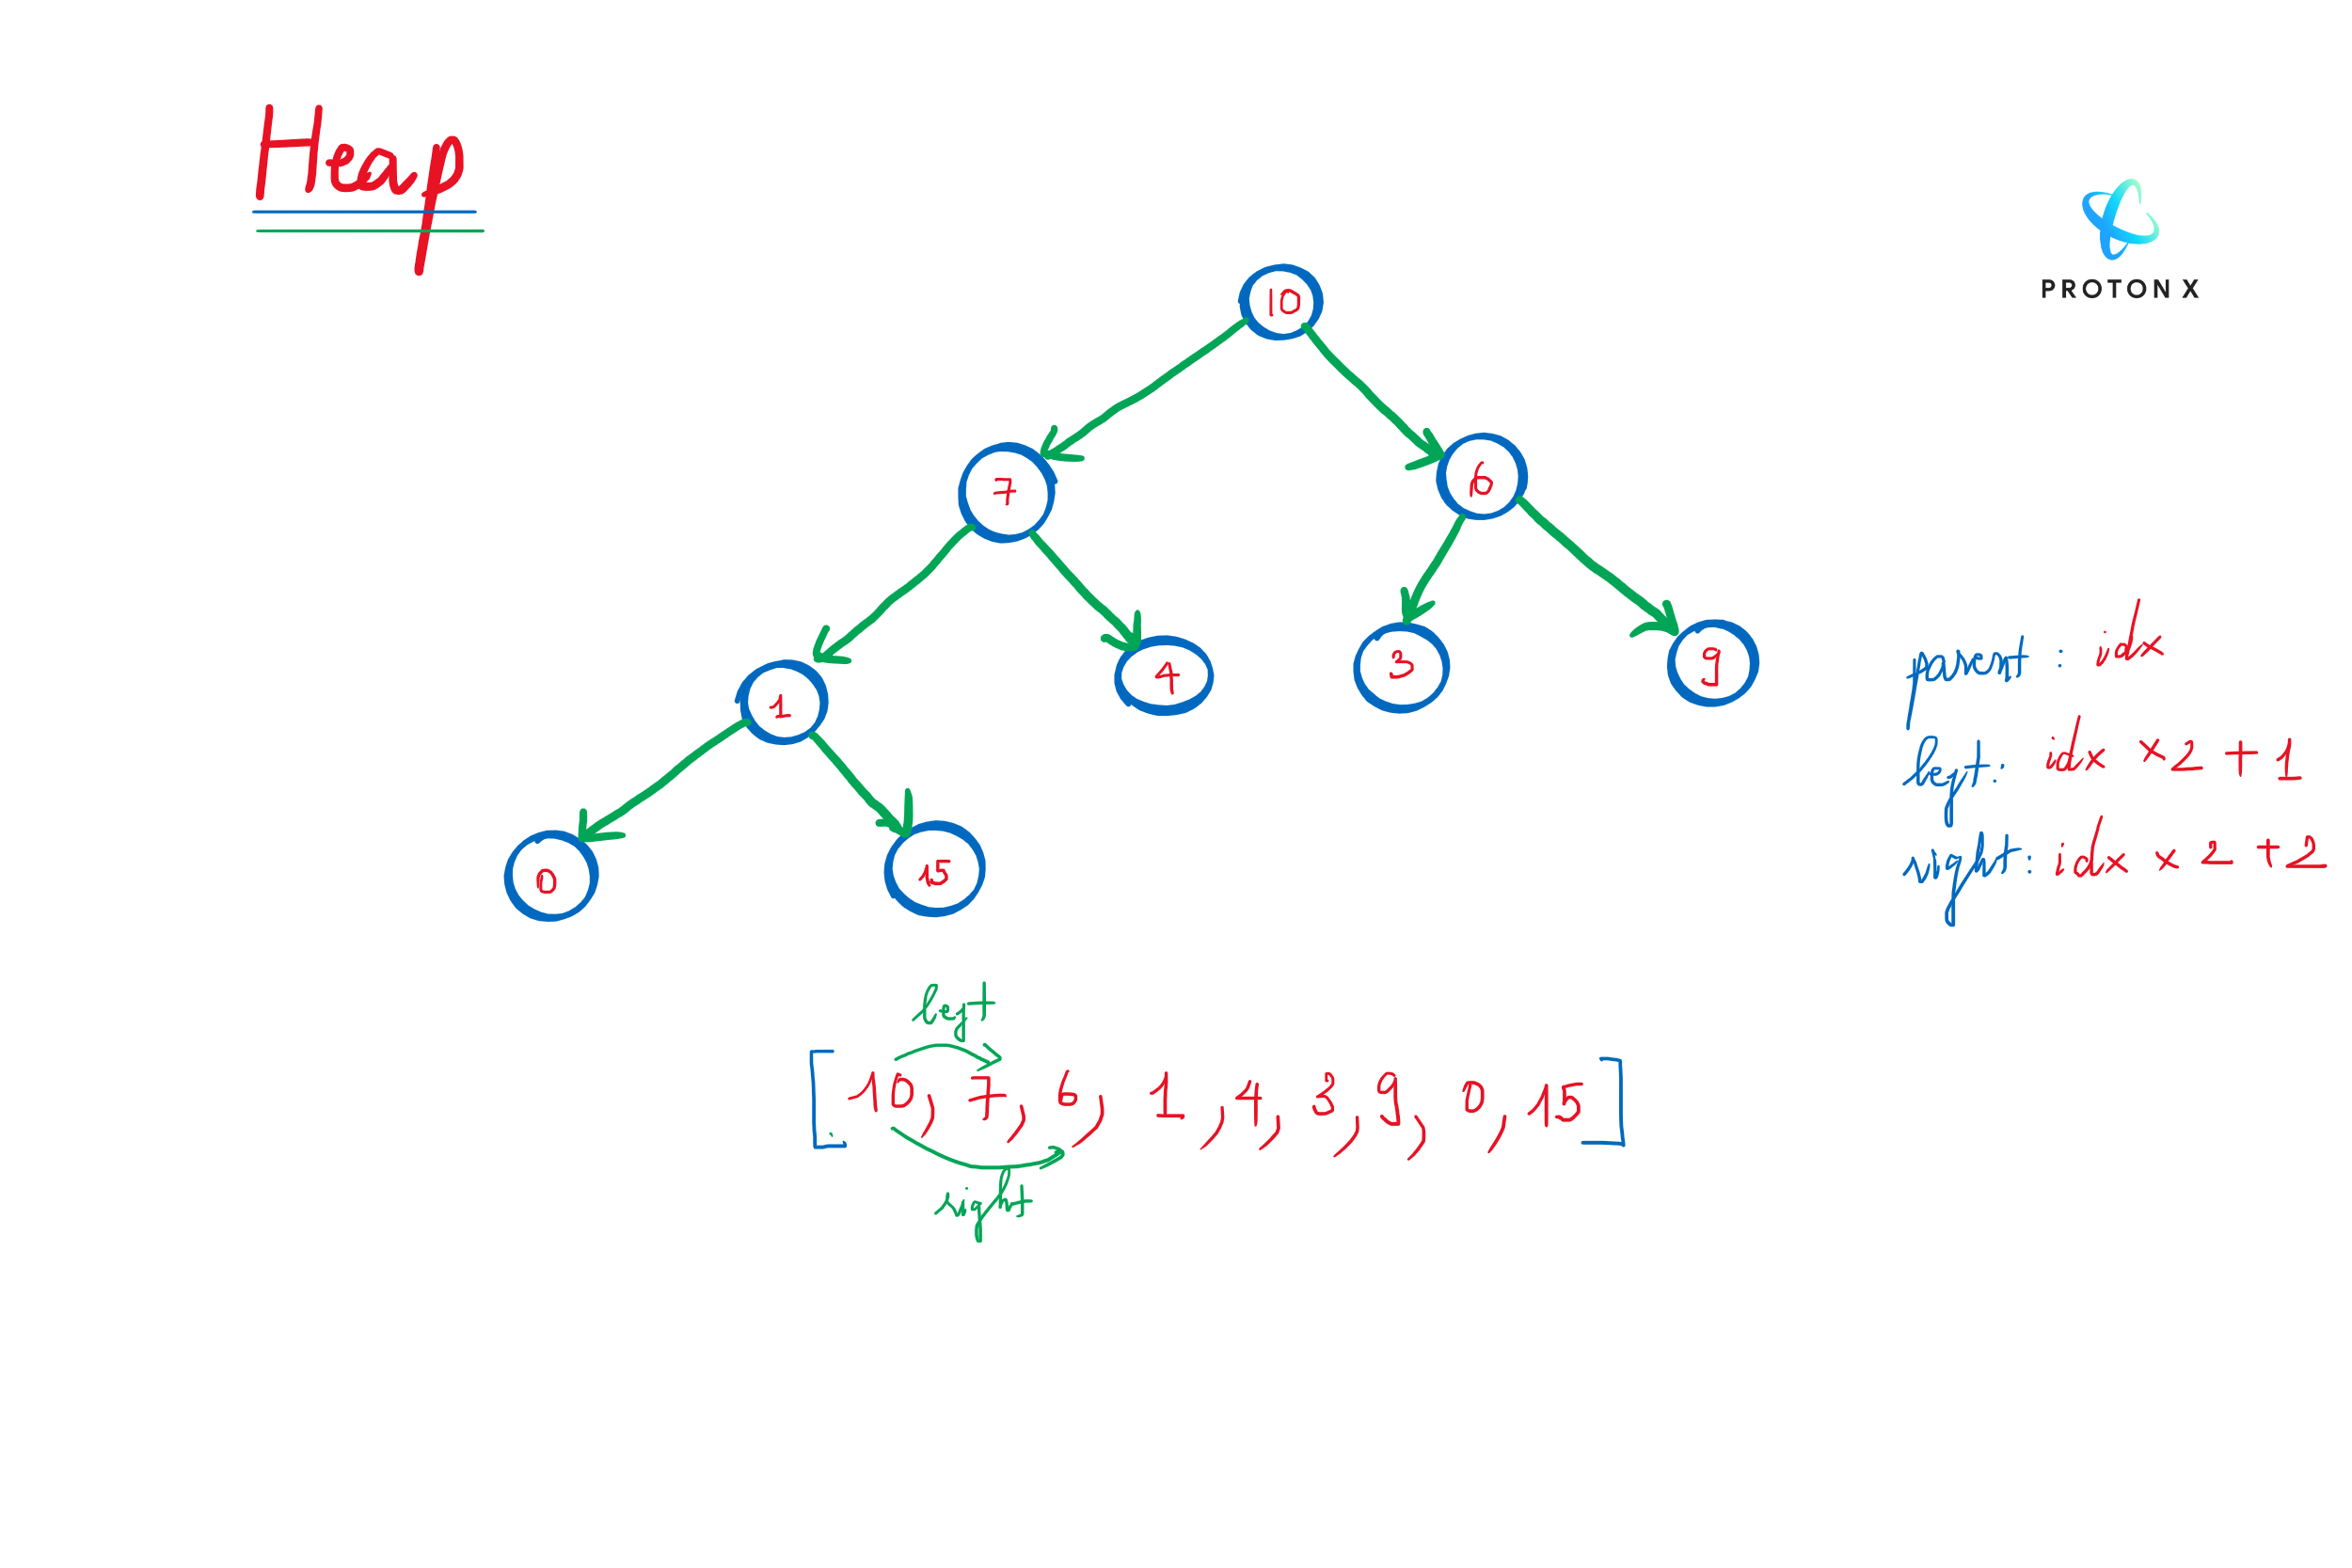 Heap
PROTON X
10
7
6
1
4
3
9
0
15
parent : idx
left: idx × 2 + 1
right: idx × 2 + 2
left
[10, 7, 6, 1, 4, 3, 9, 0, 15]
right